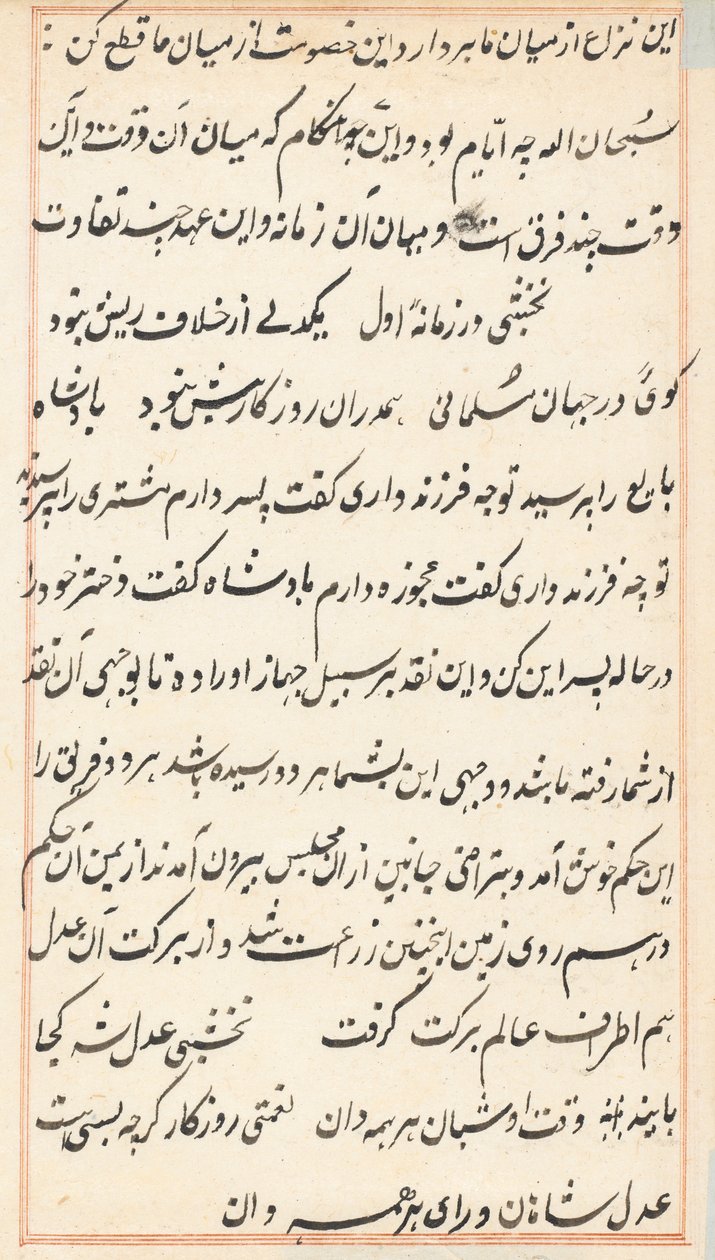 این نزاع از میان ما بردار و این خصومت از میان ما قطع کن
سُبحان الله چه ایّام بود و این چه هنگام که میان آن وقت و این
وقت چند فرق است و میان آن زمانه و این عهد چند تفاوت
نخشبی در زمانهٔ اول یکدلے از خلاف ریش نبود
گوئی در جهان مُسلمانی همدران روزگار بیش نبود بادشاه
بایع را پرسید تو چه فرزند داری کفت پسر دارم مشتری را پرسید
تو چه فرزند داری کفت عجوزه دارم بادشاه کفت دختر خود را
در حاله پسر این کن و این نقد بر سبیل جهاز او را ده تا بوجهی آن نقد
از شما رفته باشد و وجهی این بشما هر دو رسیده باشد هر دو فریق را
این حکم خوش آمد و بتراضی جانبین از ان مجلس بیرون آمدند از یمن آن حکم
در همه روی زمین اینچنین زراعت شد و از برکت آن عدل
هم اطراف عالم برکت کرفت نخشبی عدل شه کجا
یابند وقت او شبان هر همه دان نعمتی روزکار کرچه بسی است
عدل شاهان ورای هر همه دان